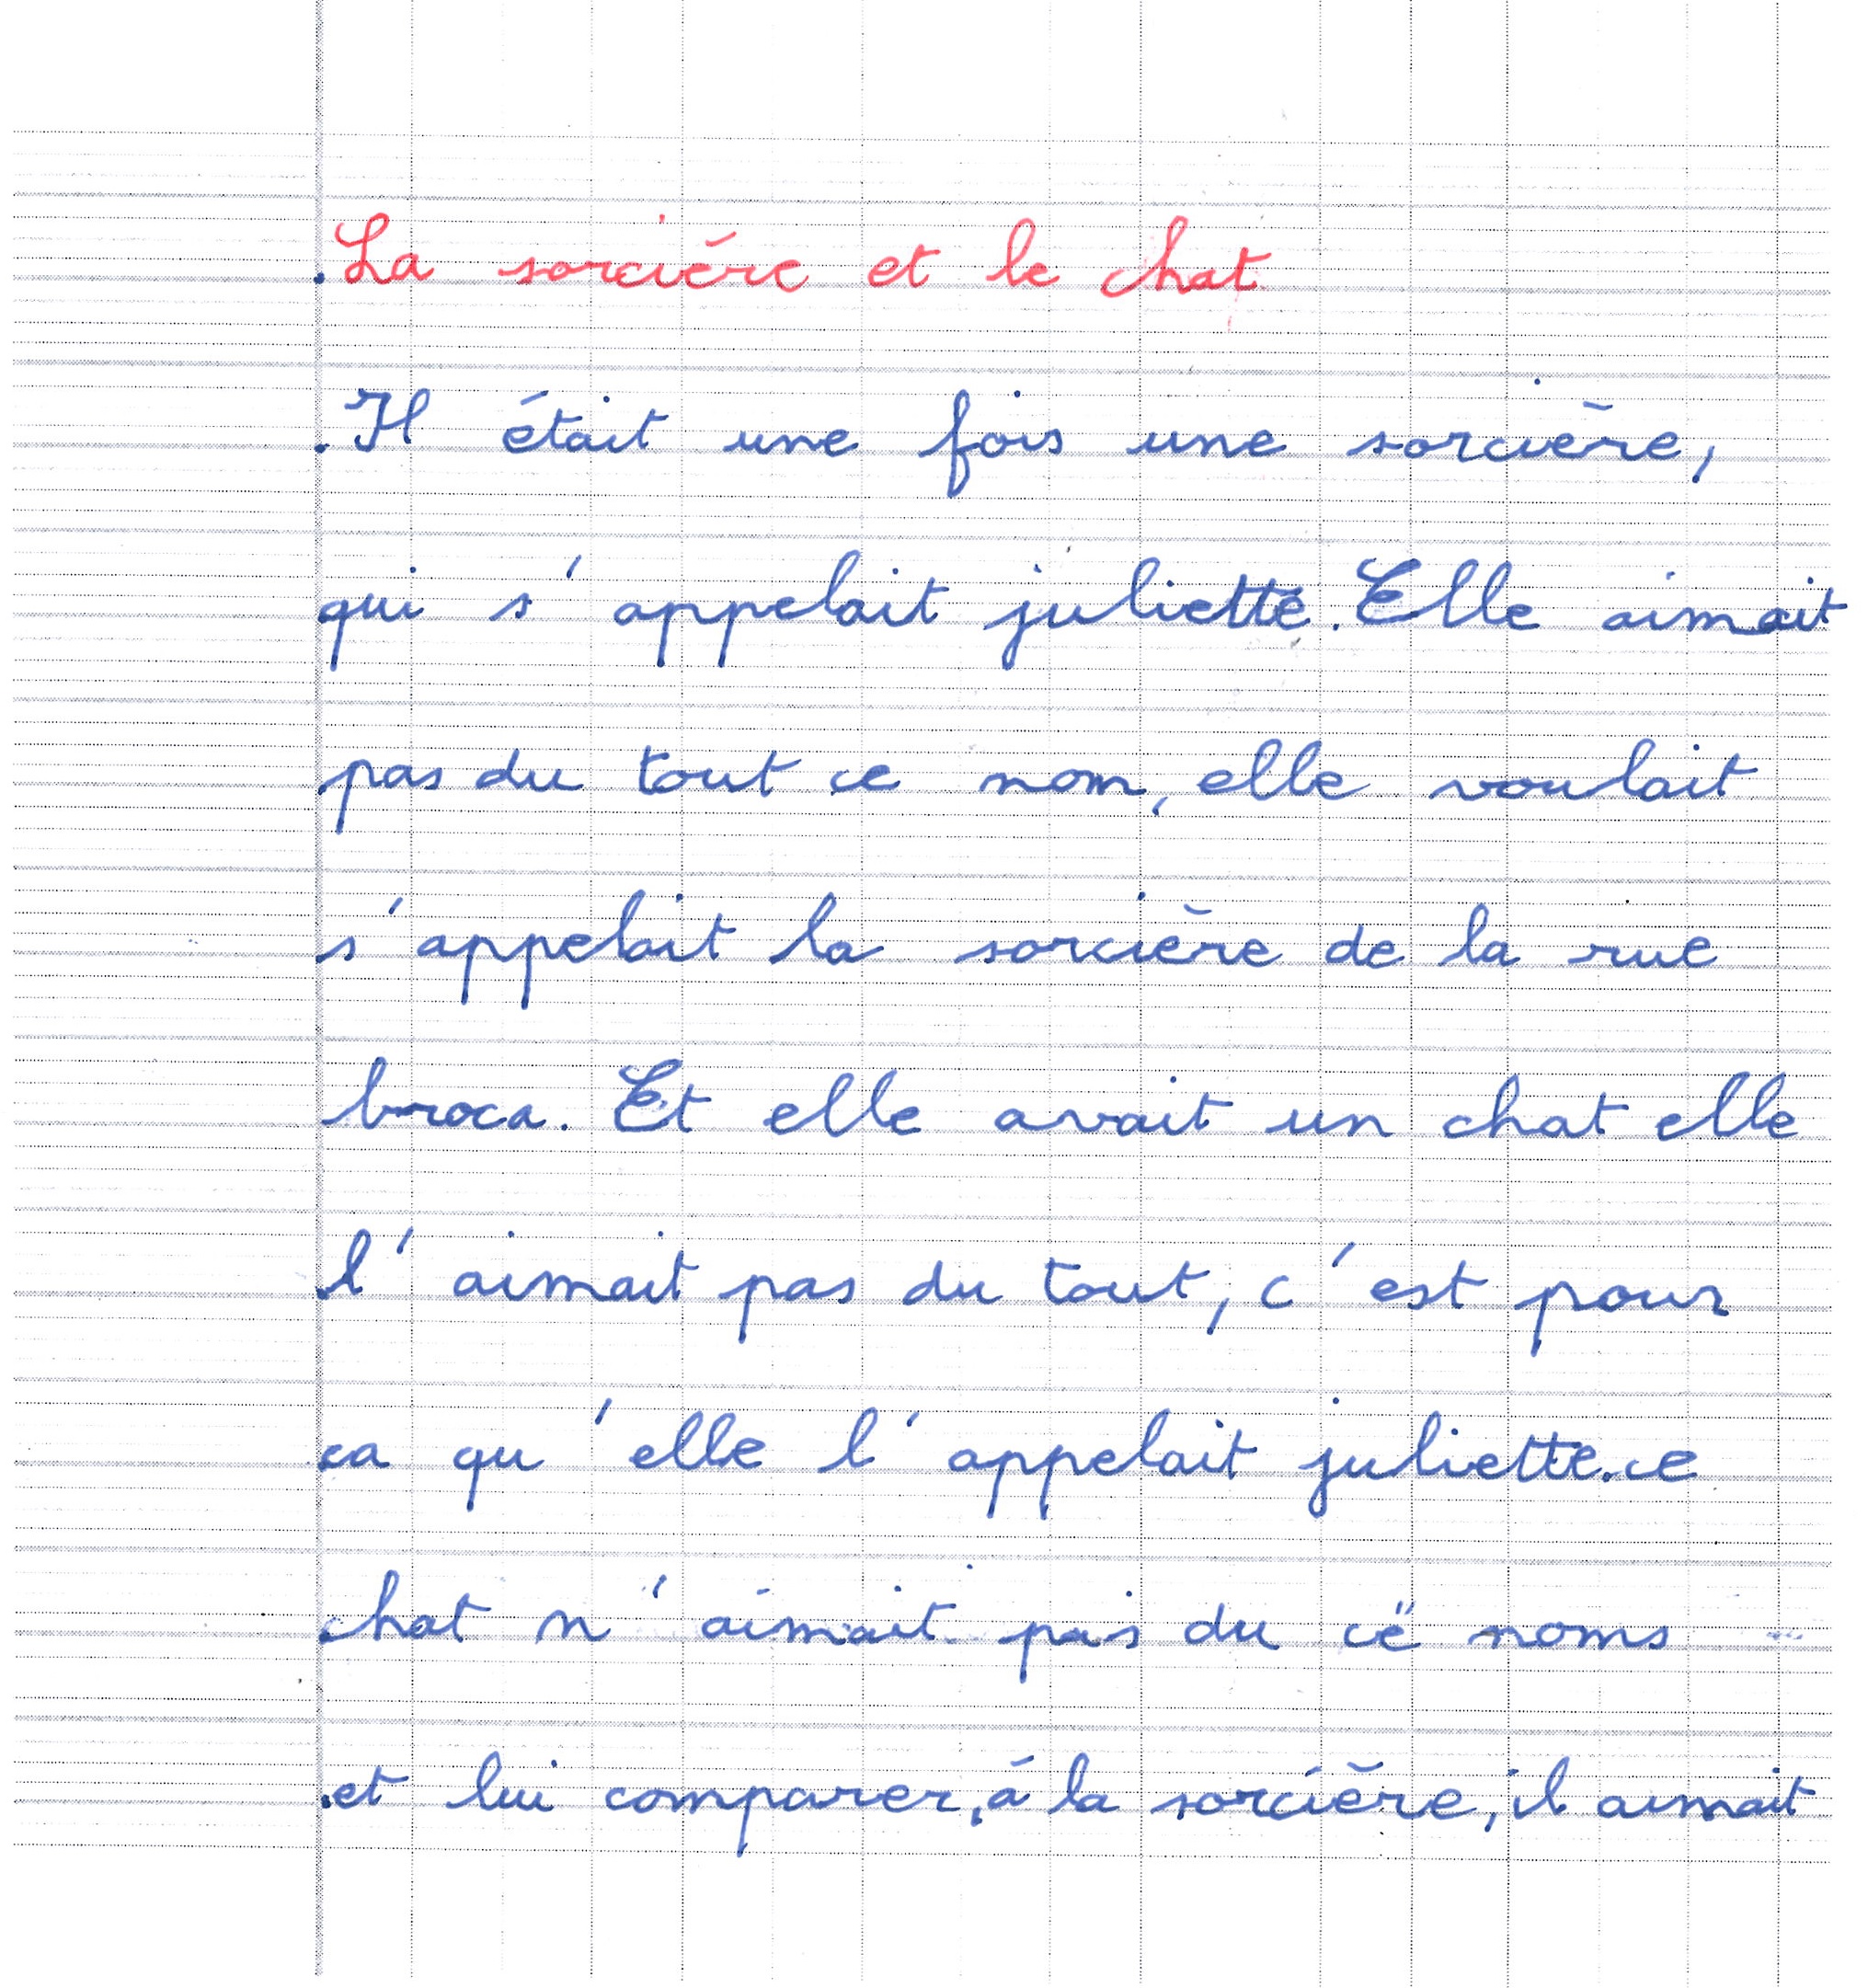 La sorcière et le chat
Il était une fois une sorcière,
qui s'appelait juliette. Elle aimait
pas du tout ce nom, elle voulait
s'appelait la sorcière de la rue
broca. Et elle avait un chat elle
l'aimait pas du tout, c'est pour
ca qu'elle l'appelait juliette.ce
chat n'aimait pas du ce noms
et lui comparer, à la sorcière, il aimait